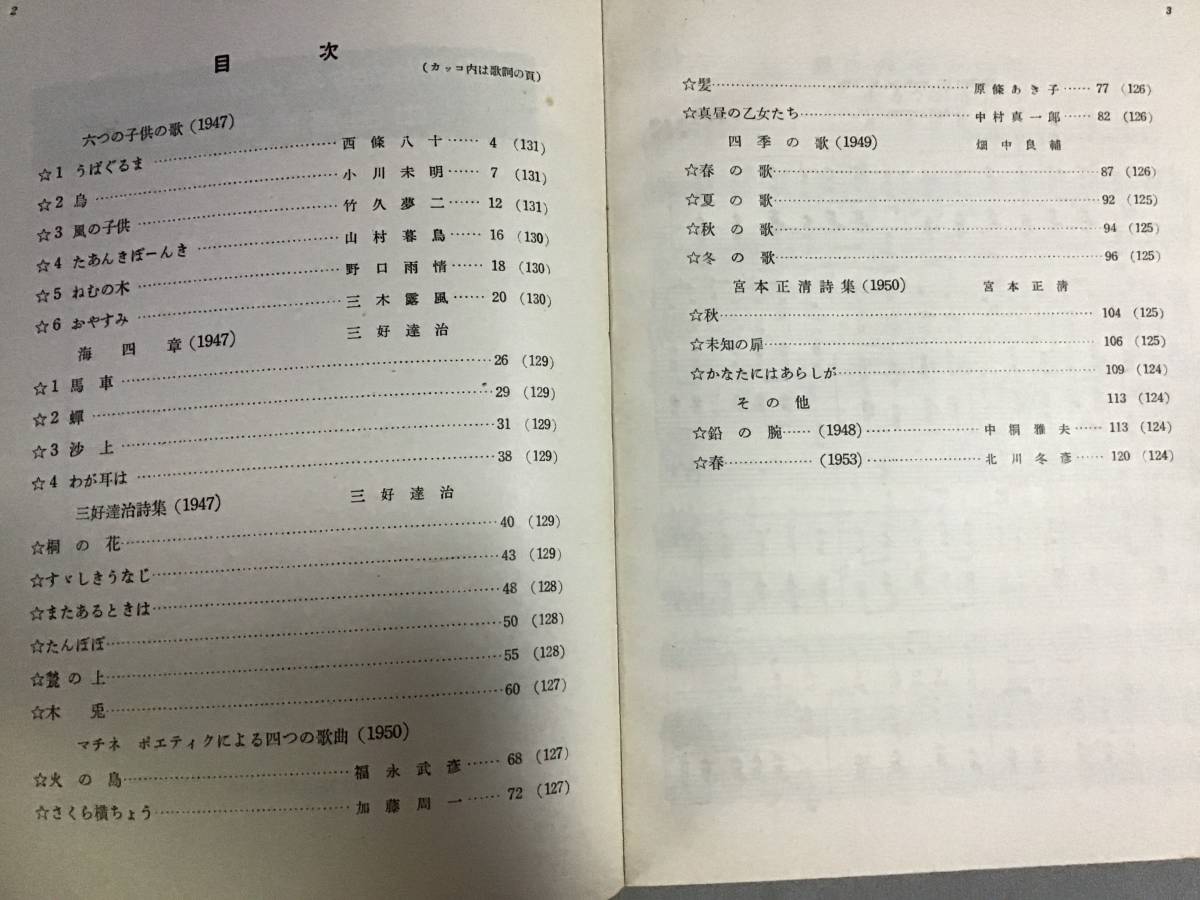 2
目 次
(カッコ内は歌詞の頁)
六つの子供の歌 (1947)
☆1 うばぐるま……西條八十……4 (131)
☆2 烏……小川未明……7 (131)
☆3 風の子供……竹久夢二……12 (131)
☆4 たあんきぽーんき……山村暮鳥……16 (130)
☆5 ねむの木……野口雨情……18 (130)
☆6 おやすみ……三木露風……20 (130)
海四章 (1947) 三好達治
☆1 馬車……26 (129)
☆2 蟬……29 (129)
☆3 沙上……31 (129)
☆4 わが耳は……38 (129)
三好達治詩集 (1947) 三好達治
☆桐の花……40 (129)
☆すゞしきうなじ……43 (129)
☆またあるときは……48 (128)
☆たんぽぽ……50 (128)
☆甃の上……55 (128)
☆木兎……60 (127)
マチネ ポエティクによる四つの歌曲 (1950)
☆火の鳥……福永武彦……68 (127)
☆さくら横ちょう……加藤周一……72 (127)
3
☆髪……原條あき子……77 (126)
☆真昼の乙女たち……中村真一郎……82 (126)
四季の歌 (1949) 畑中良輔
☆春の歌……87 (126)
☆夏の歌……92 (125)
☆秋の歌……94 (125)
☆冬の歌……96 (125)
宮本正清詩集 (1950) 宮本正清
☆秋……104 (125)
☆未知の扉……106 (125)
☆かなたにはあらしが……109 (124)
その他 113 (124)
☆鉛の腕……(1948)……中桐雅夫……113 (124)
☆春……(1953)……北川冬彦……120 (124)